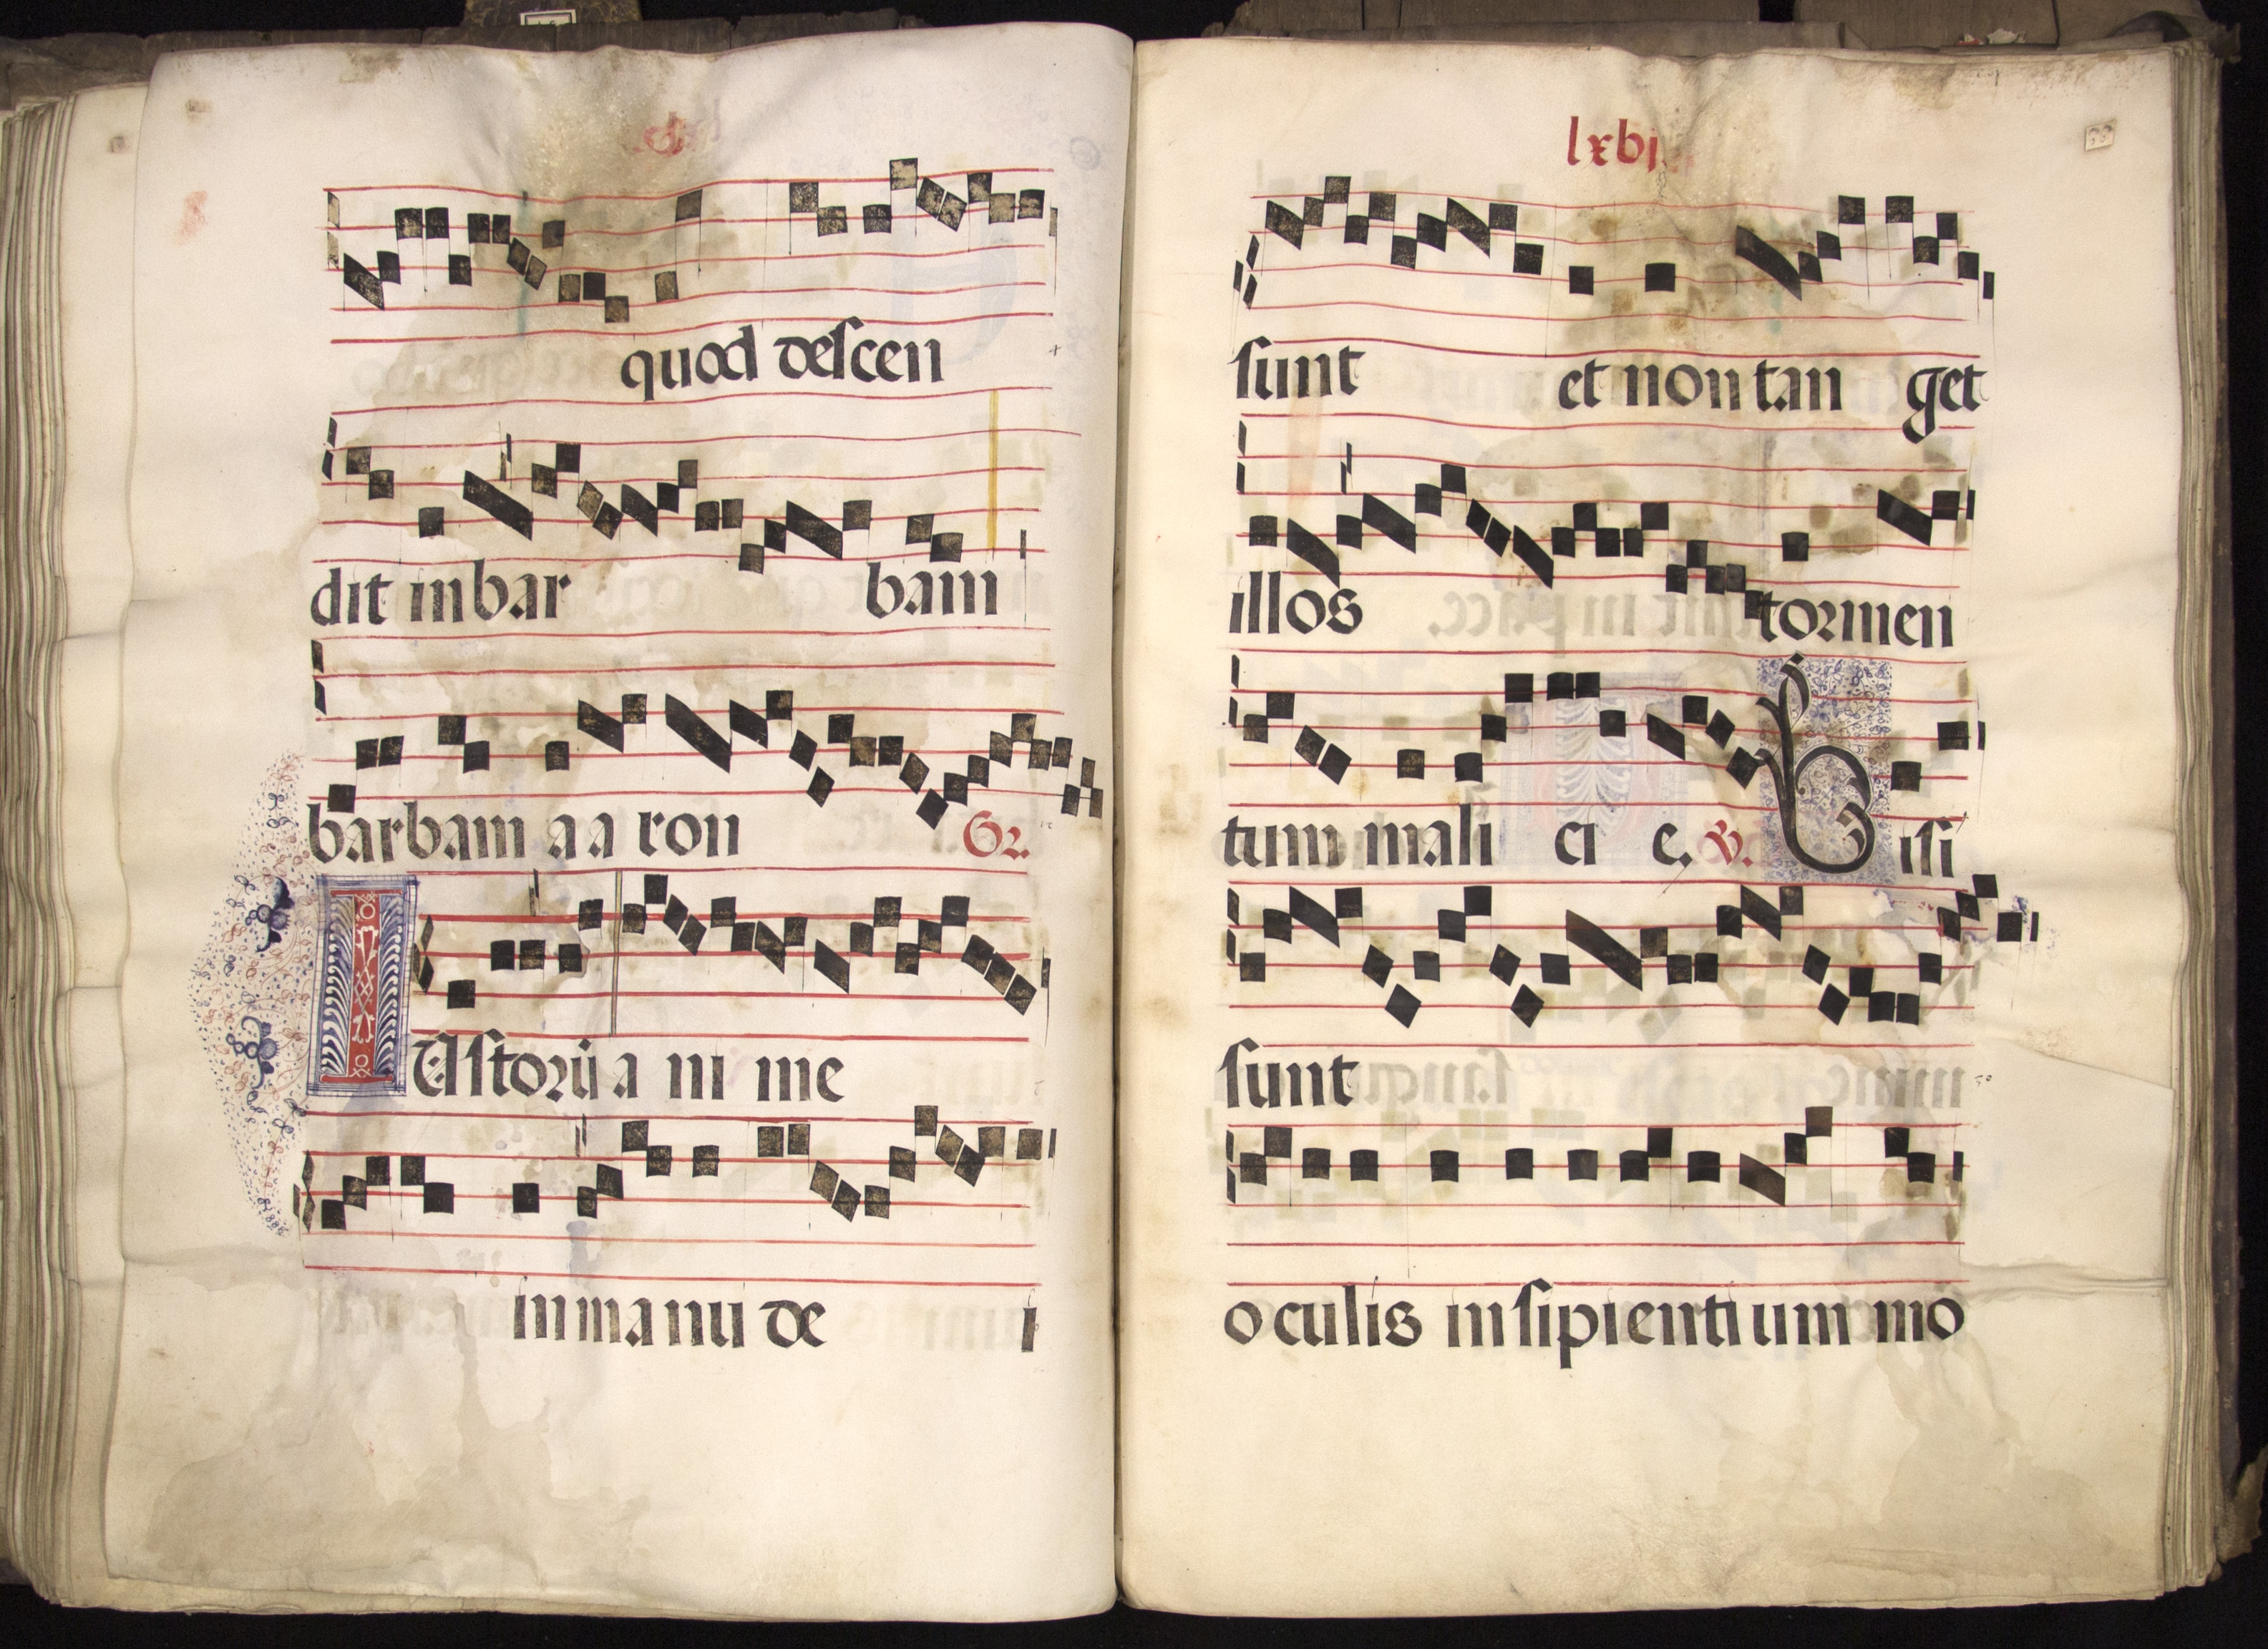 quod descen
dit in bar bam
barbam a a ron Gr.
I Ustorū a ni me
in ma nu de i
lxbj.
sunt et non tan get
illos tormen
tum mali ci e. V. Visi
sunt
oculis insipientium mo